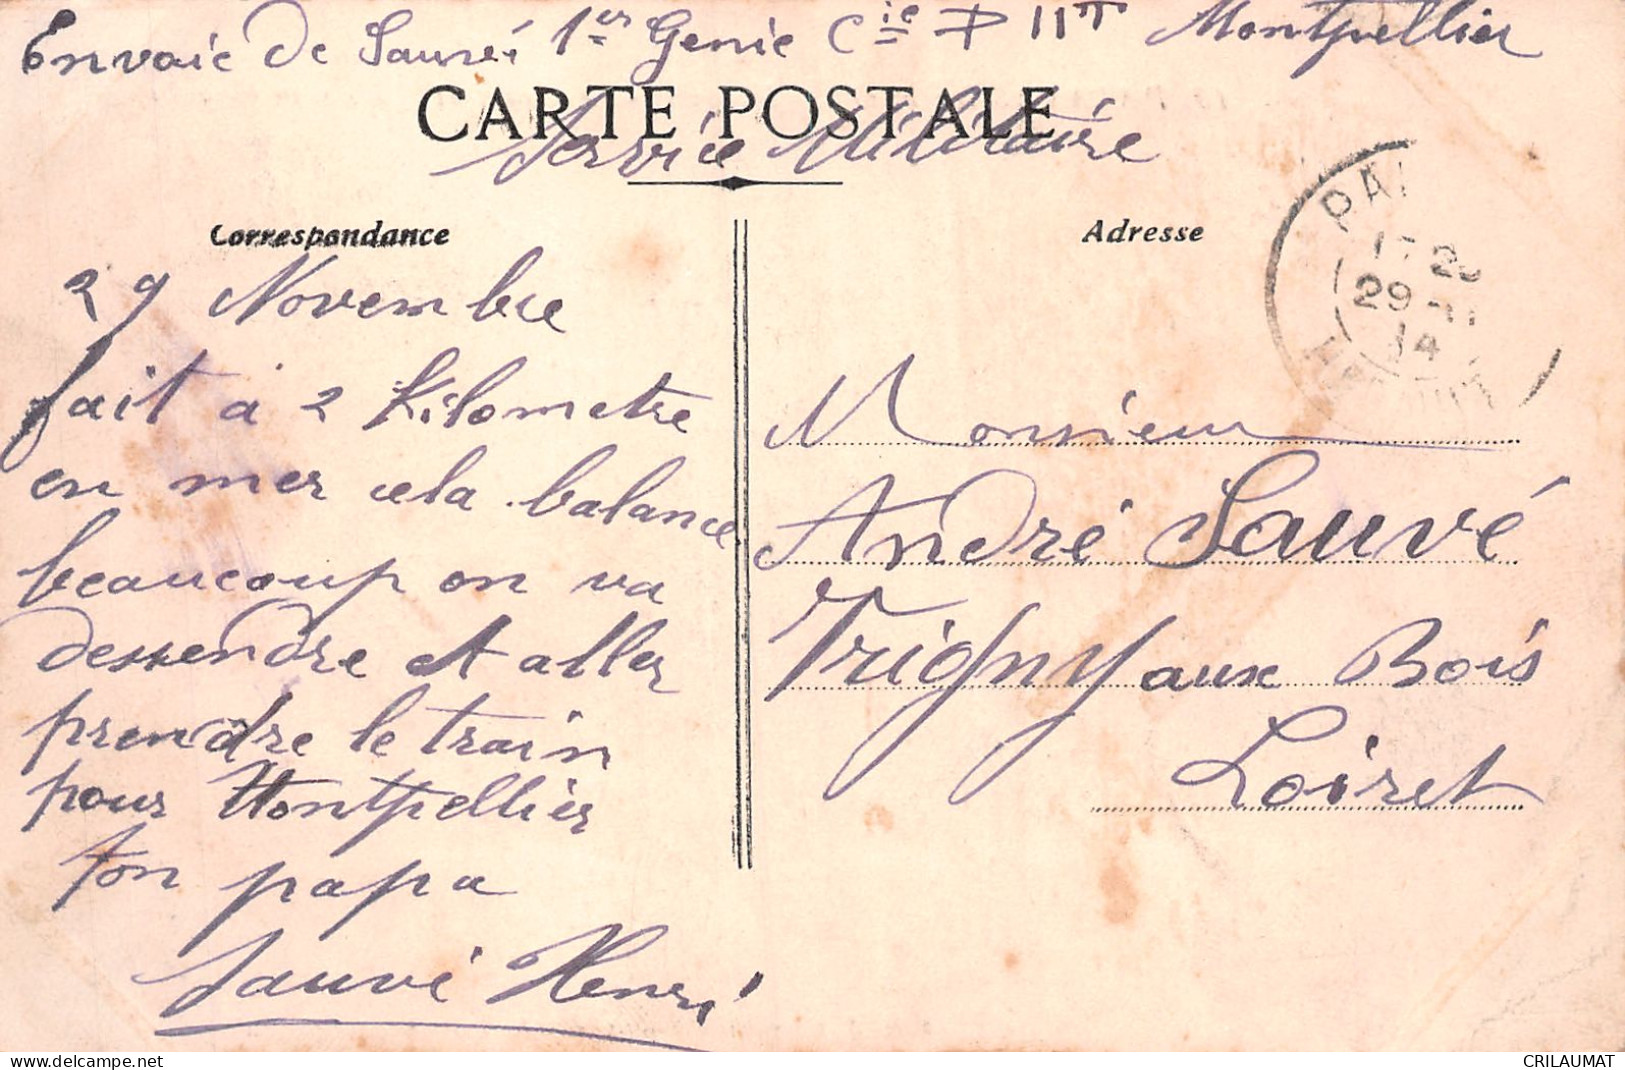 Envoie De Sauvé 1er Genie Cie D 11T Montpellier
CARTE POSTALE
Service Militaire
Correspondance
29 Novembre
fait à 2 Kilometre
en mer cela balance
beaucoup on va
dessendre et aller
prendre le train
pour Montpellier
ton papa
Sauvé Henri
Adresse
29 - 11
14
Monsieur
André Sauvé
Trigny aux Bois
Loiret
delcampe.net
CRILAUMAT